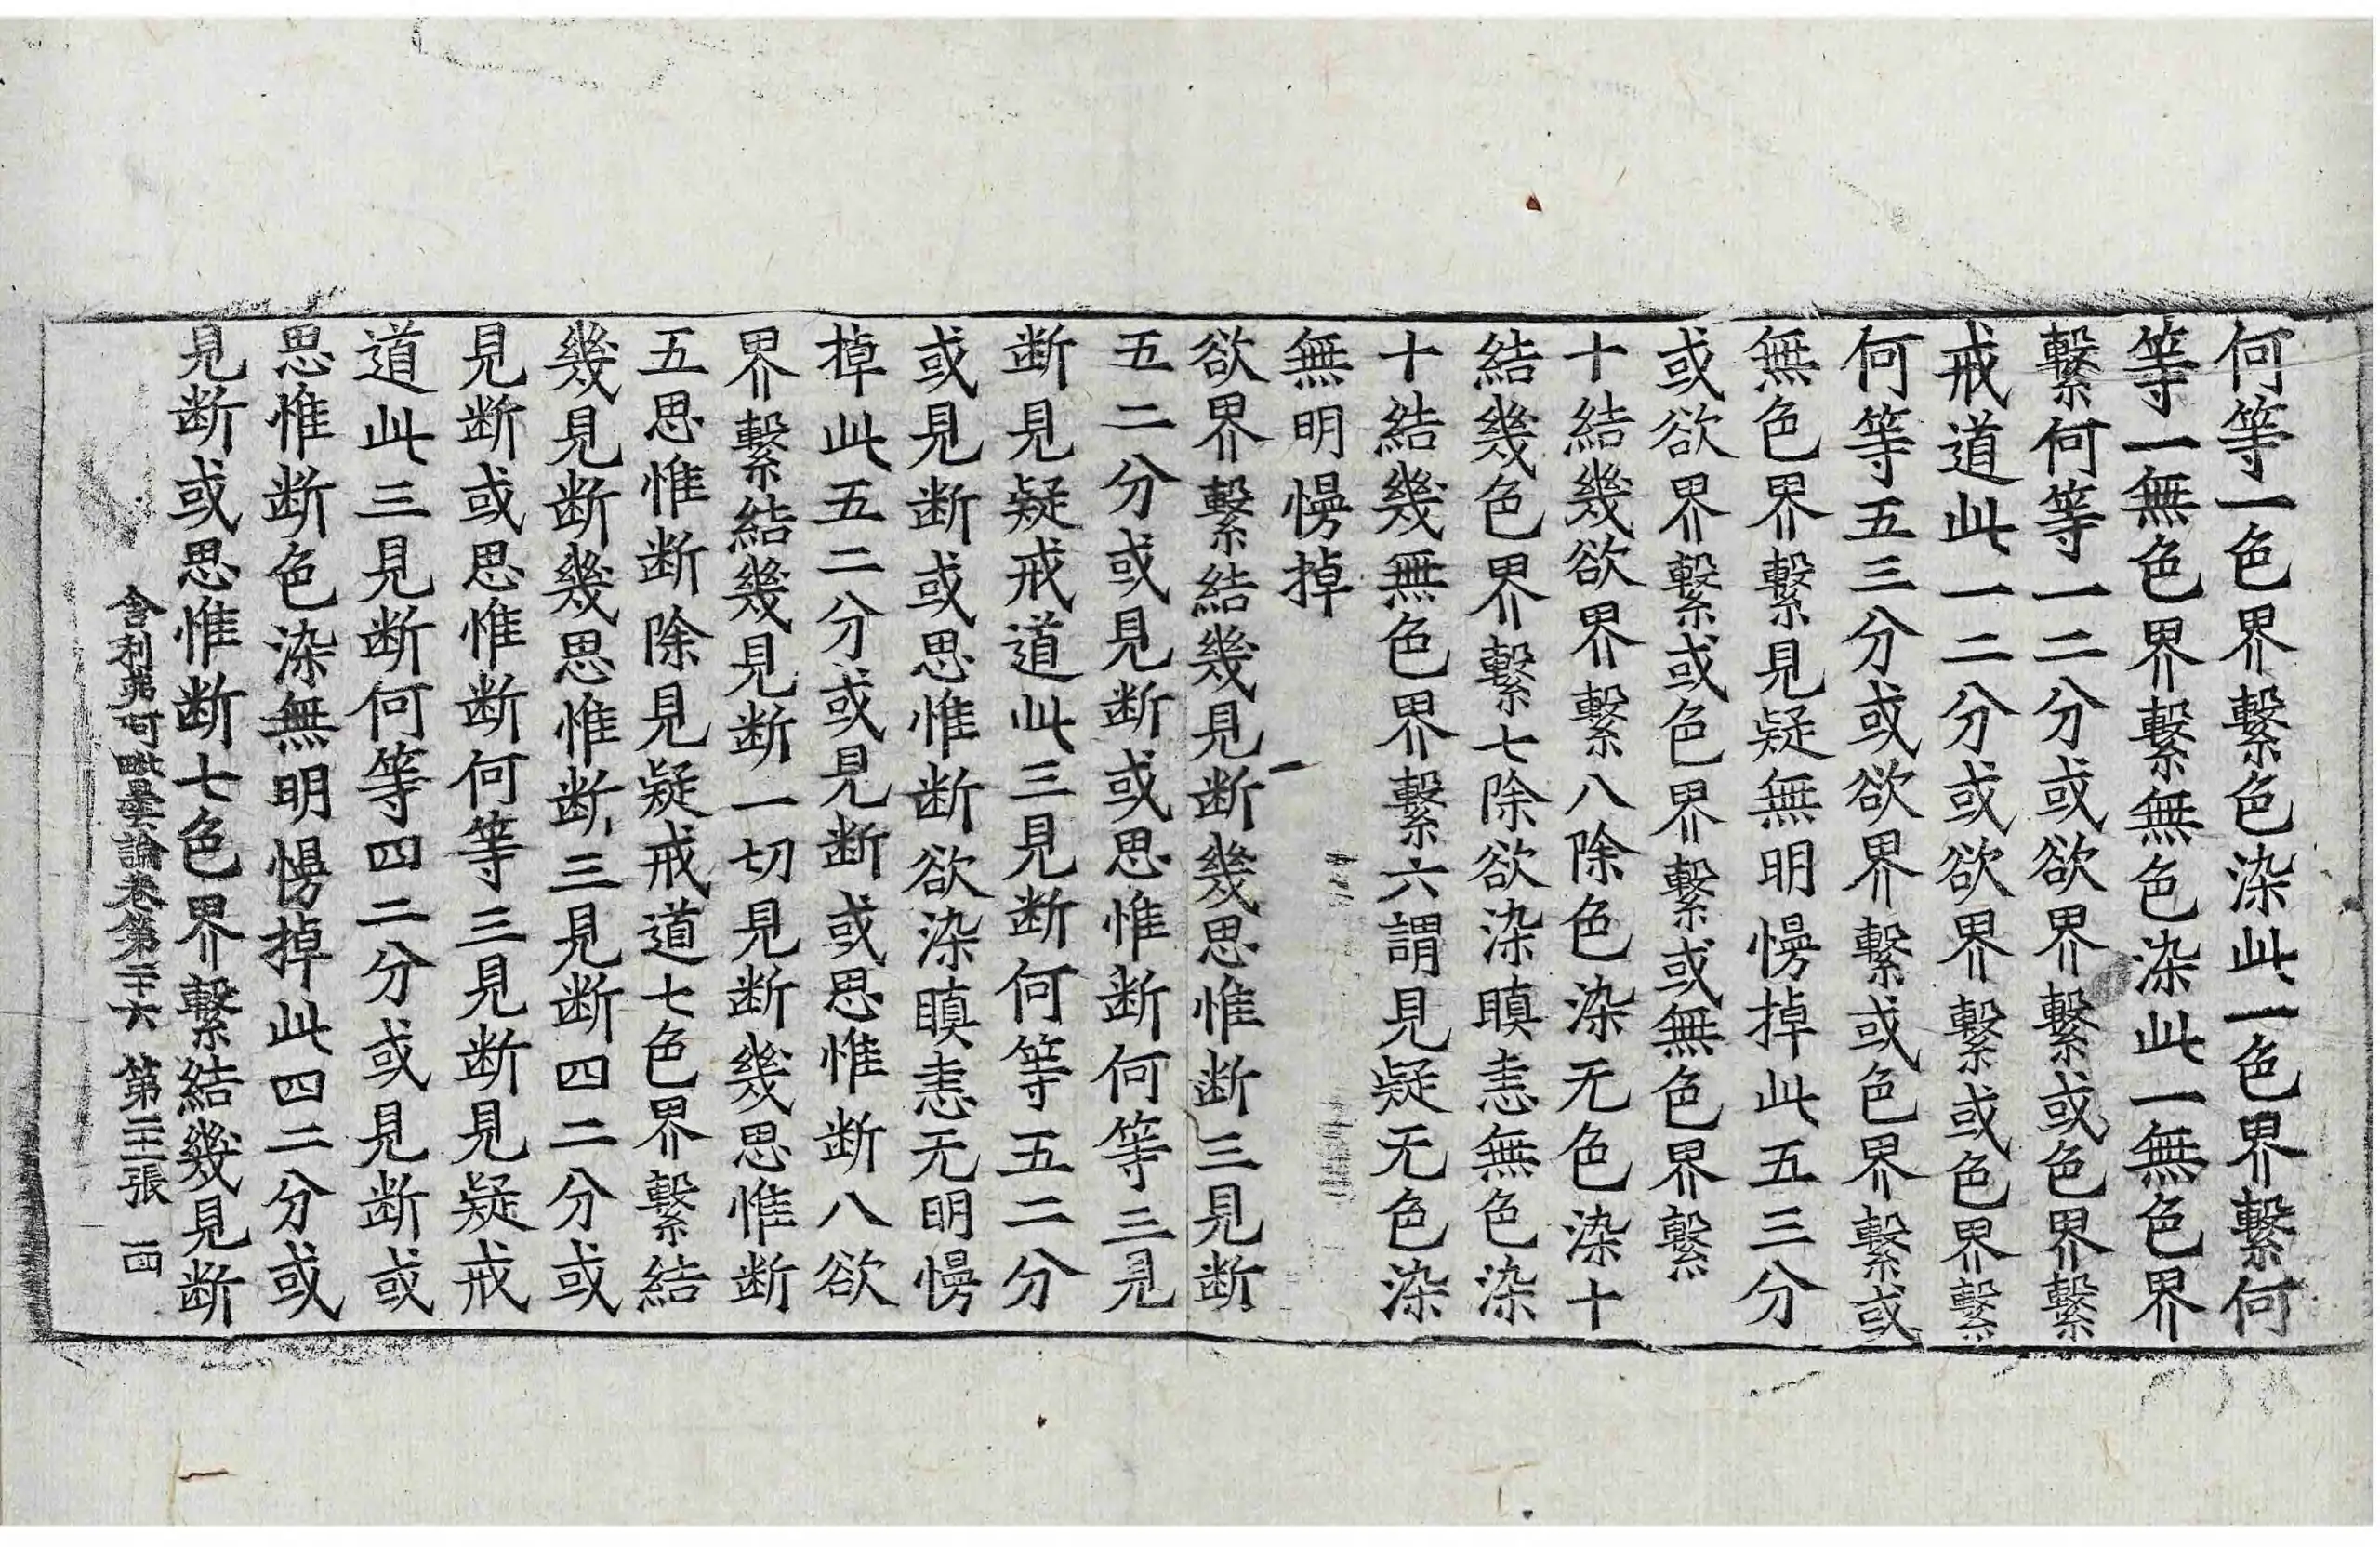 何等一色界繫色染此一色界繫何
等一無色界繫無色染此一無色界
繫何等一二分或欲界繫或色界繫
戒道此一二分或欲界繫或色界繫
何等五三分或欲界繫或色界繫或
無色界繫見疑無明慢掉此五三分
或欲界繫或色界繫或無色界繫
十結幾欲界繫八除色染无色染十
結幾色界繫七除欲染瞋恚無色染
十結幾無色界繫六謂見疑无色染
無明慢掉
欲界繫結幾見断幾思惟断三見断
五二分或見断或思惟断何等三見
断見疑戒道此三見断何等五二分
或見断或思惟断欲染瞋恚无明慢
掉此五二分或見断或思惟断八欲
界繫結幾見断一切見断幾思惟断
五思惟断除見疑戒道七色界繫結
幾見断幾思惟断三見断四二分或
見断或思惟断何等三見断見疑戒
道此三見断何等四二分或見断或
思惟断色染無明慢掉此四二分或
見断或思惟断七色界繫結幾見断
舍利弗阿毗曇論卷第二十六 第張